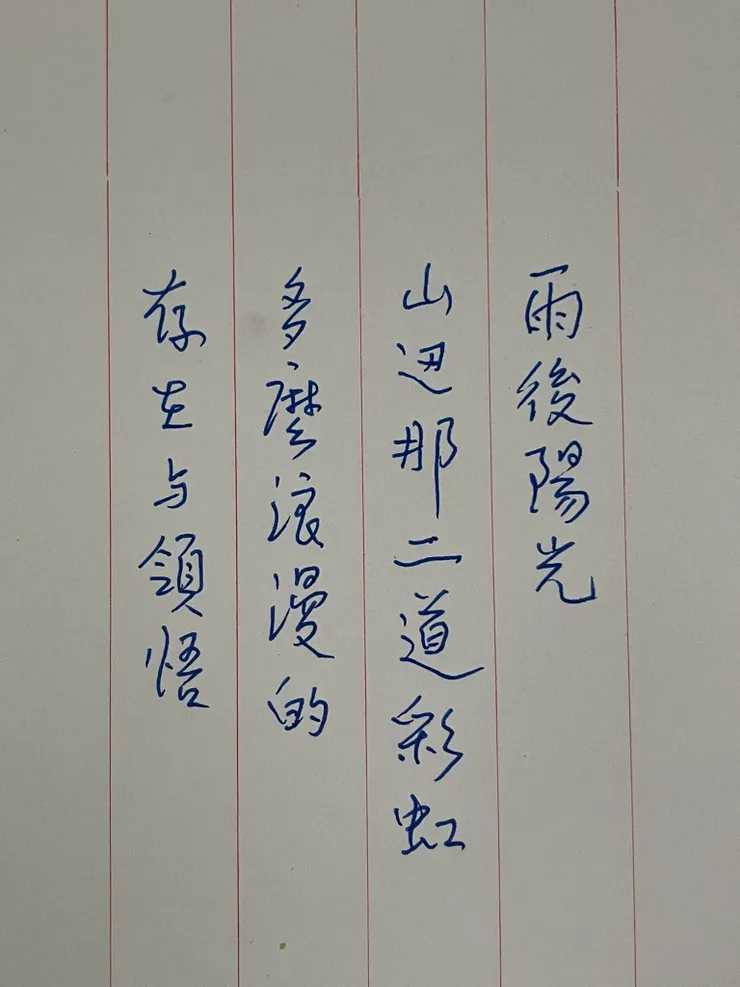 雨後陽光
山边那二道彩虹
多麼浪漫的
存在与領悟